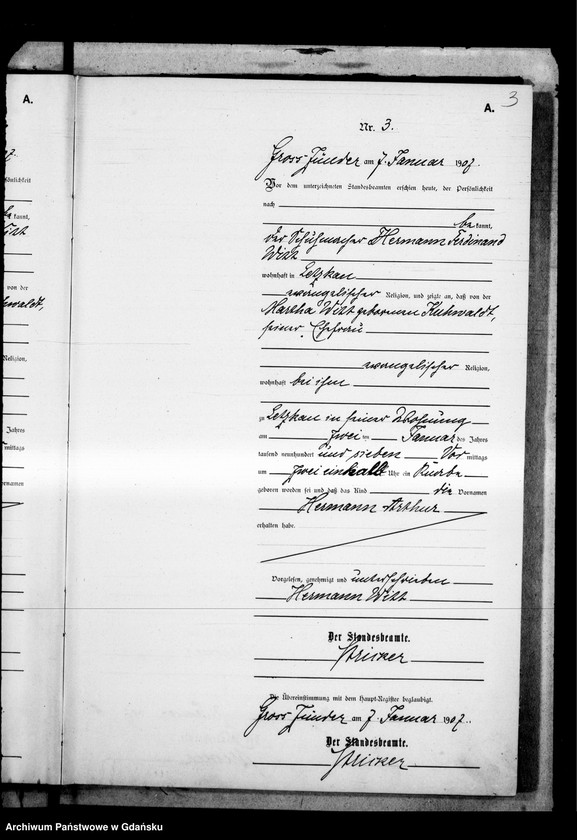 A.
A. 3
Nr. 3.
Gross Zünder am 7. Januar 1907.
Vor dem unterzeichneten Standesbeamten erschien heute, der Persönlichkeit
nach
bekannt,
der Schuhmacher Hermann Ferdinand
Witt
wohnhaft in Letzkau
evangelischer Religion, und zeigte an, daß von der
Martha Witt geborenen Kuhwaldt,
seiner Ehefrau
evangelischer Religion,
wohnhaft bei ihm
zu Letzkau in seiner Wohnung
am zwei ten Januar des Jahres
tausend neunhundert und sieben Vor mittags
um zwei einhalb Uhr ein Knabe
geboren worden sei und daß das Kind die Vornamen
Hermann Arthur
erhalten habe.
Vorgelesen, genehmigt und unterschrieben
Hermann Witt
Der Standesbeamte.
Stricker
Die Übereinstimmung mit dem Haupt-Register beglaubigt.
Gross Zünder am 7. Januar 1907.
Der Standesbeamte.
Stricker
kannt,
von der
Religion,
Jahres
mittags
ornamen
Archiwum Państwowe w Gdańsku